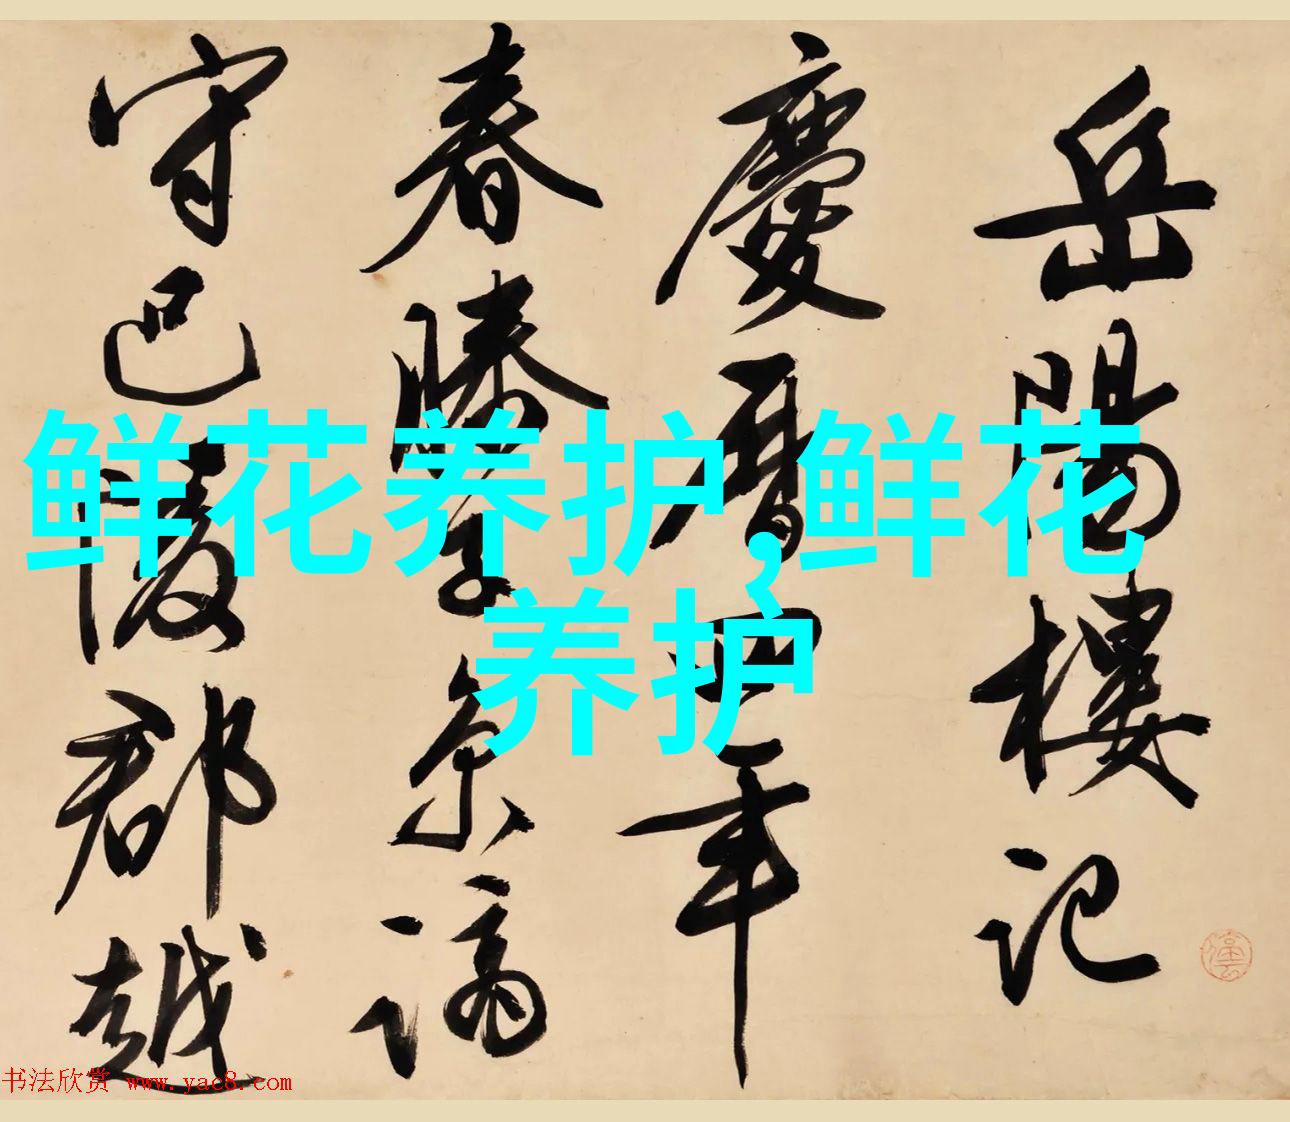 岳陽樓记
慶曆四年
春滕子京謫
守巴陵郡越
鲜花养护,鲜花
养护
书法欣赏 www.yac8.com